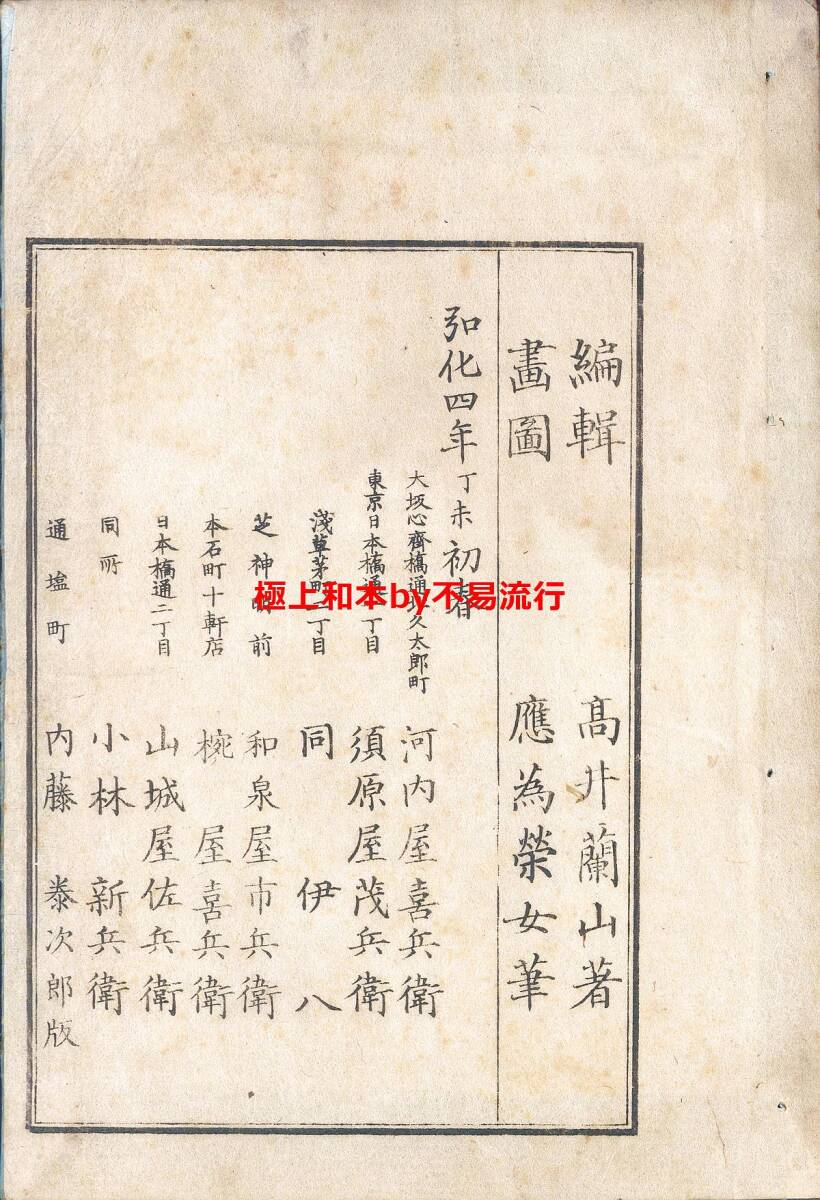 編輯 高井蘭山著
畫圖 應為榮女筆
弘化四年丁未初春
大坂心齋橋通北久太郎町 河内屋喜兵衛
東京日本橋通一丁目 須原屋茂兵衛
淺草茅町二丁目 同伊八
芝神明前 和泉屋市兵衛
本石町十軒店 椀屋喜兵衛
日本橋通二丁目 山城屋佐兵衛
同所 小林新兵衛
通塩町 内藤泰次郎版
極上和本by不易流行